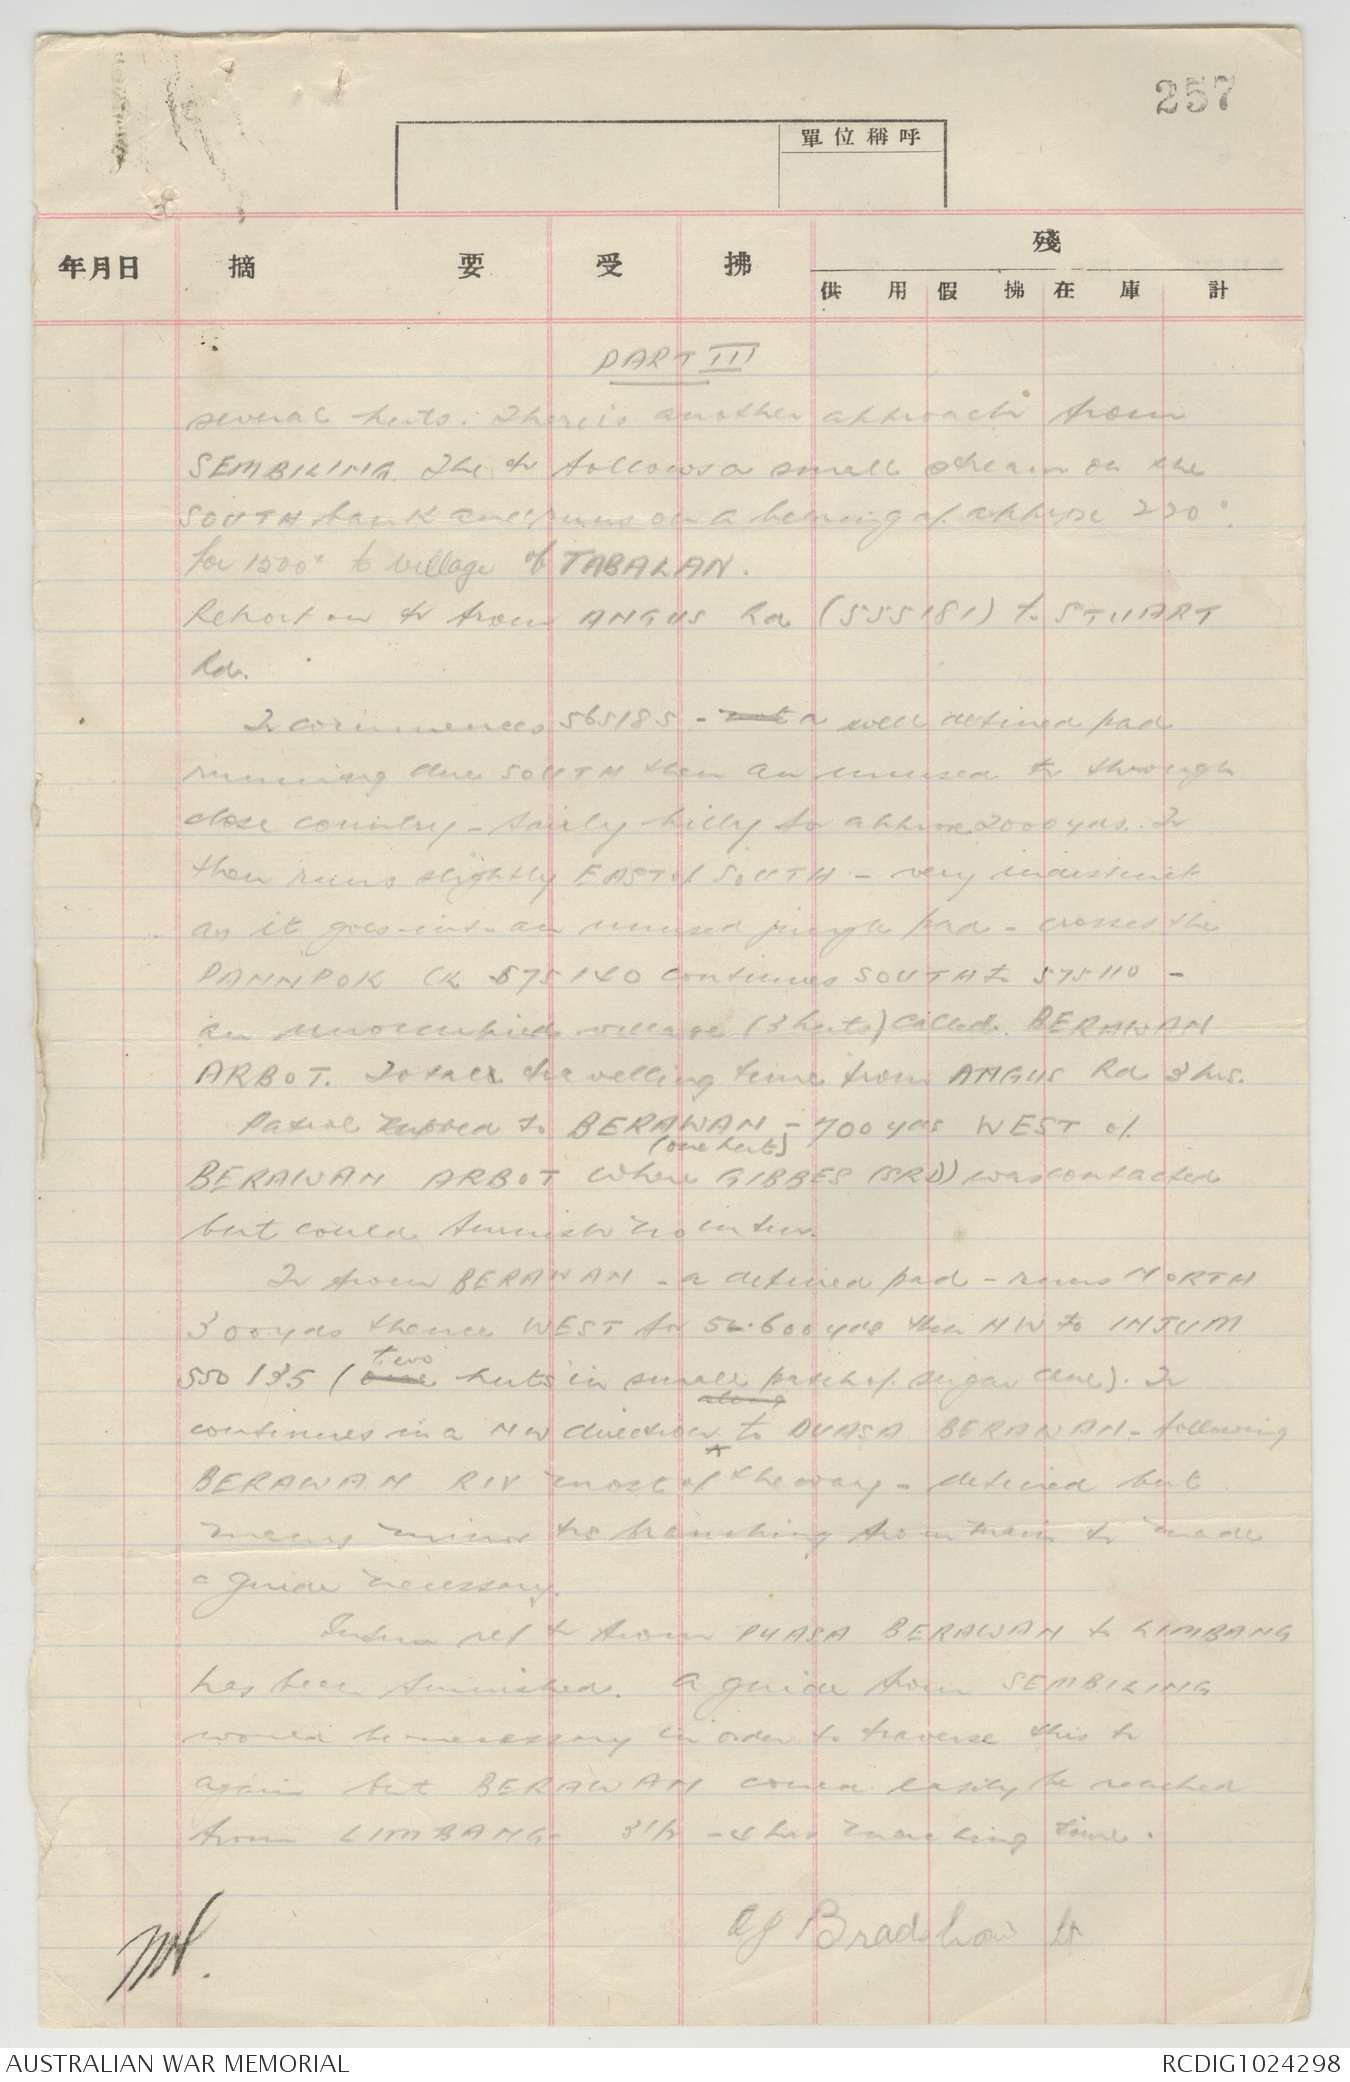 257
單位稱呼
年月日 摘 要 受 拂 殘
供用 假拂 在庫 計
PART III
several huts. There is another approach from
SEMBILING. The tr follows a small stream on the
SOUTH bank and runs on a bearing of approx 220°
for 1500x to village of TABALAN.
Report on tr from ANGUS Rd (555181) to STUART
Rd.
Tr commences 565185 - not a well defined pad
running due SOUTH then an unused tr through
close country - fairly hilly for approx 2000 yds. Tr
then runs slightly EAST of SOUTH - very indistinct
as it goes into an unused jungle pad - crosses the
PANNPOK CK 575140 continues SOUTH to 575110 -
an unoccupied village (3 huts) called BERAWAN
ARBOT. Total travelling time from ANGUS Rd 3 hrs.
Patrol moved to BERAWAN - 700 yds WEST of
(one hut)
BERAWAN ARBOT where GIBBES (SRD) was contacted
but could furnish no infm.
Tr from BERAWAN - a defined pad - runs NORTH
300 yds thence WEST for 5 - 600 yds then NW to INJUM
two
550135 (one huts in small patch of sugar cane). Tr
along
continues in a NW direction to PUASA BERAWAN - following
BERAWAN RIV most of the way - defined but
many minor trs branching from main tr made
a guide necessary.
Infm ref tr from PUASA BERAWAN to LIMBANG
has been furnished. A guide from SEMBILING
would be necessary in order to traverse this tr
again but BERAWAN could easily be reached
from LIMBANG 3½ - 4 hrs marching time.
Bradshaw Lt
AUSTRALIAN WAR MEMORIAL
RCDIG1024298